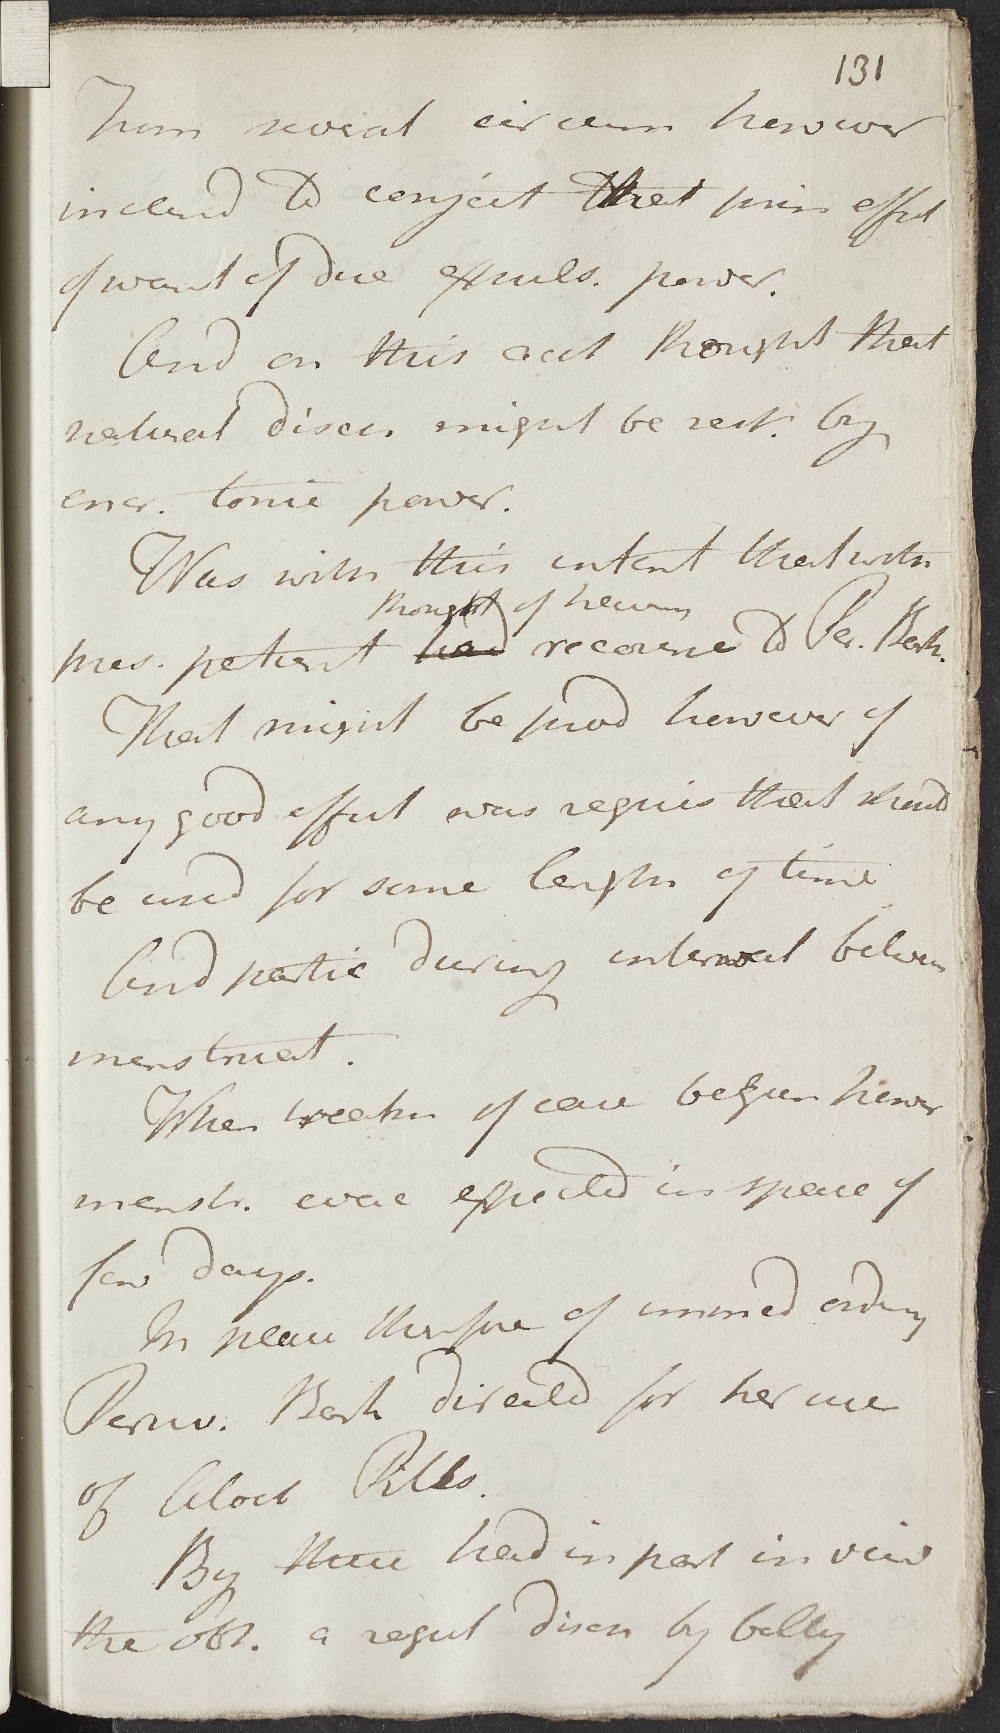 131
From several circum however
inclind to conject that prim effect
of want of due expuls. power.
And on this acct thought that
natural disch might be rest. by
encr. tonic power.
Was with this intent that with
thought of having
pres. patient had recourse to Per. Bark.
That might be prod however of
any good effect was requis that should
be used for some length of time
And partic during interval betwen
menstruat.
When treatm of case begun howr
menstr. evac expected in space of
few days.
In place therfore of immed ordering
Peruv. Bark directed for her use
of Aloet Pills.
By these had in part in view
the obt. a regul disch by belly